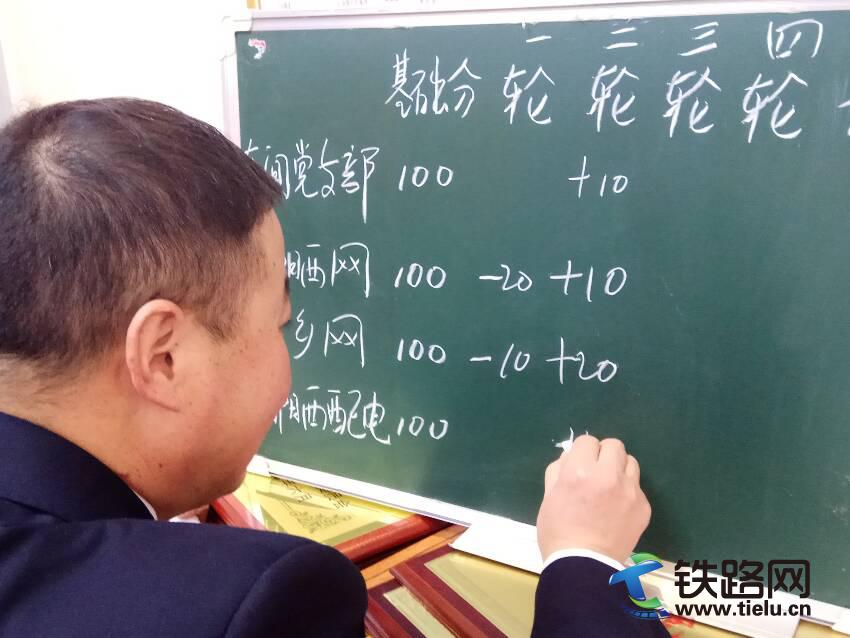 基础分 一轮 二轮 三轮 四轮
间党支部 100 +10
西网 100 -20 +10
乡网 100 -10 +20
西配电 100
铁路网
www.tielu.cn